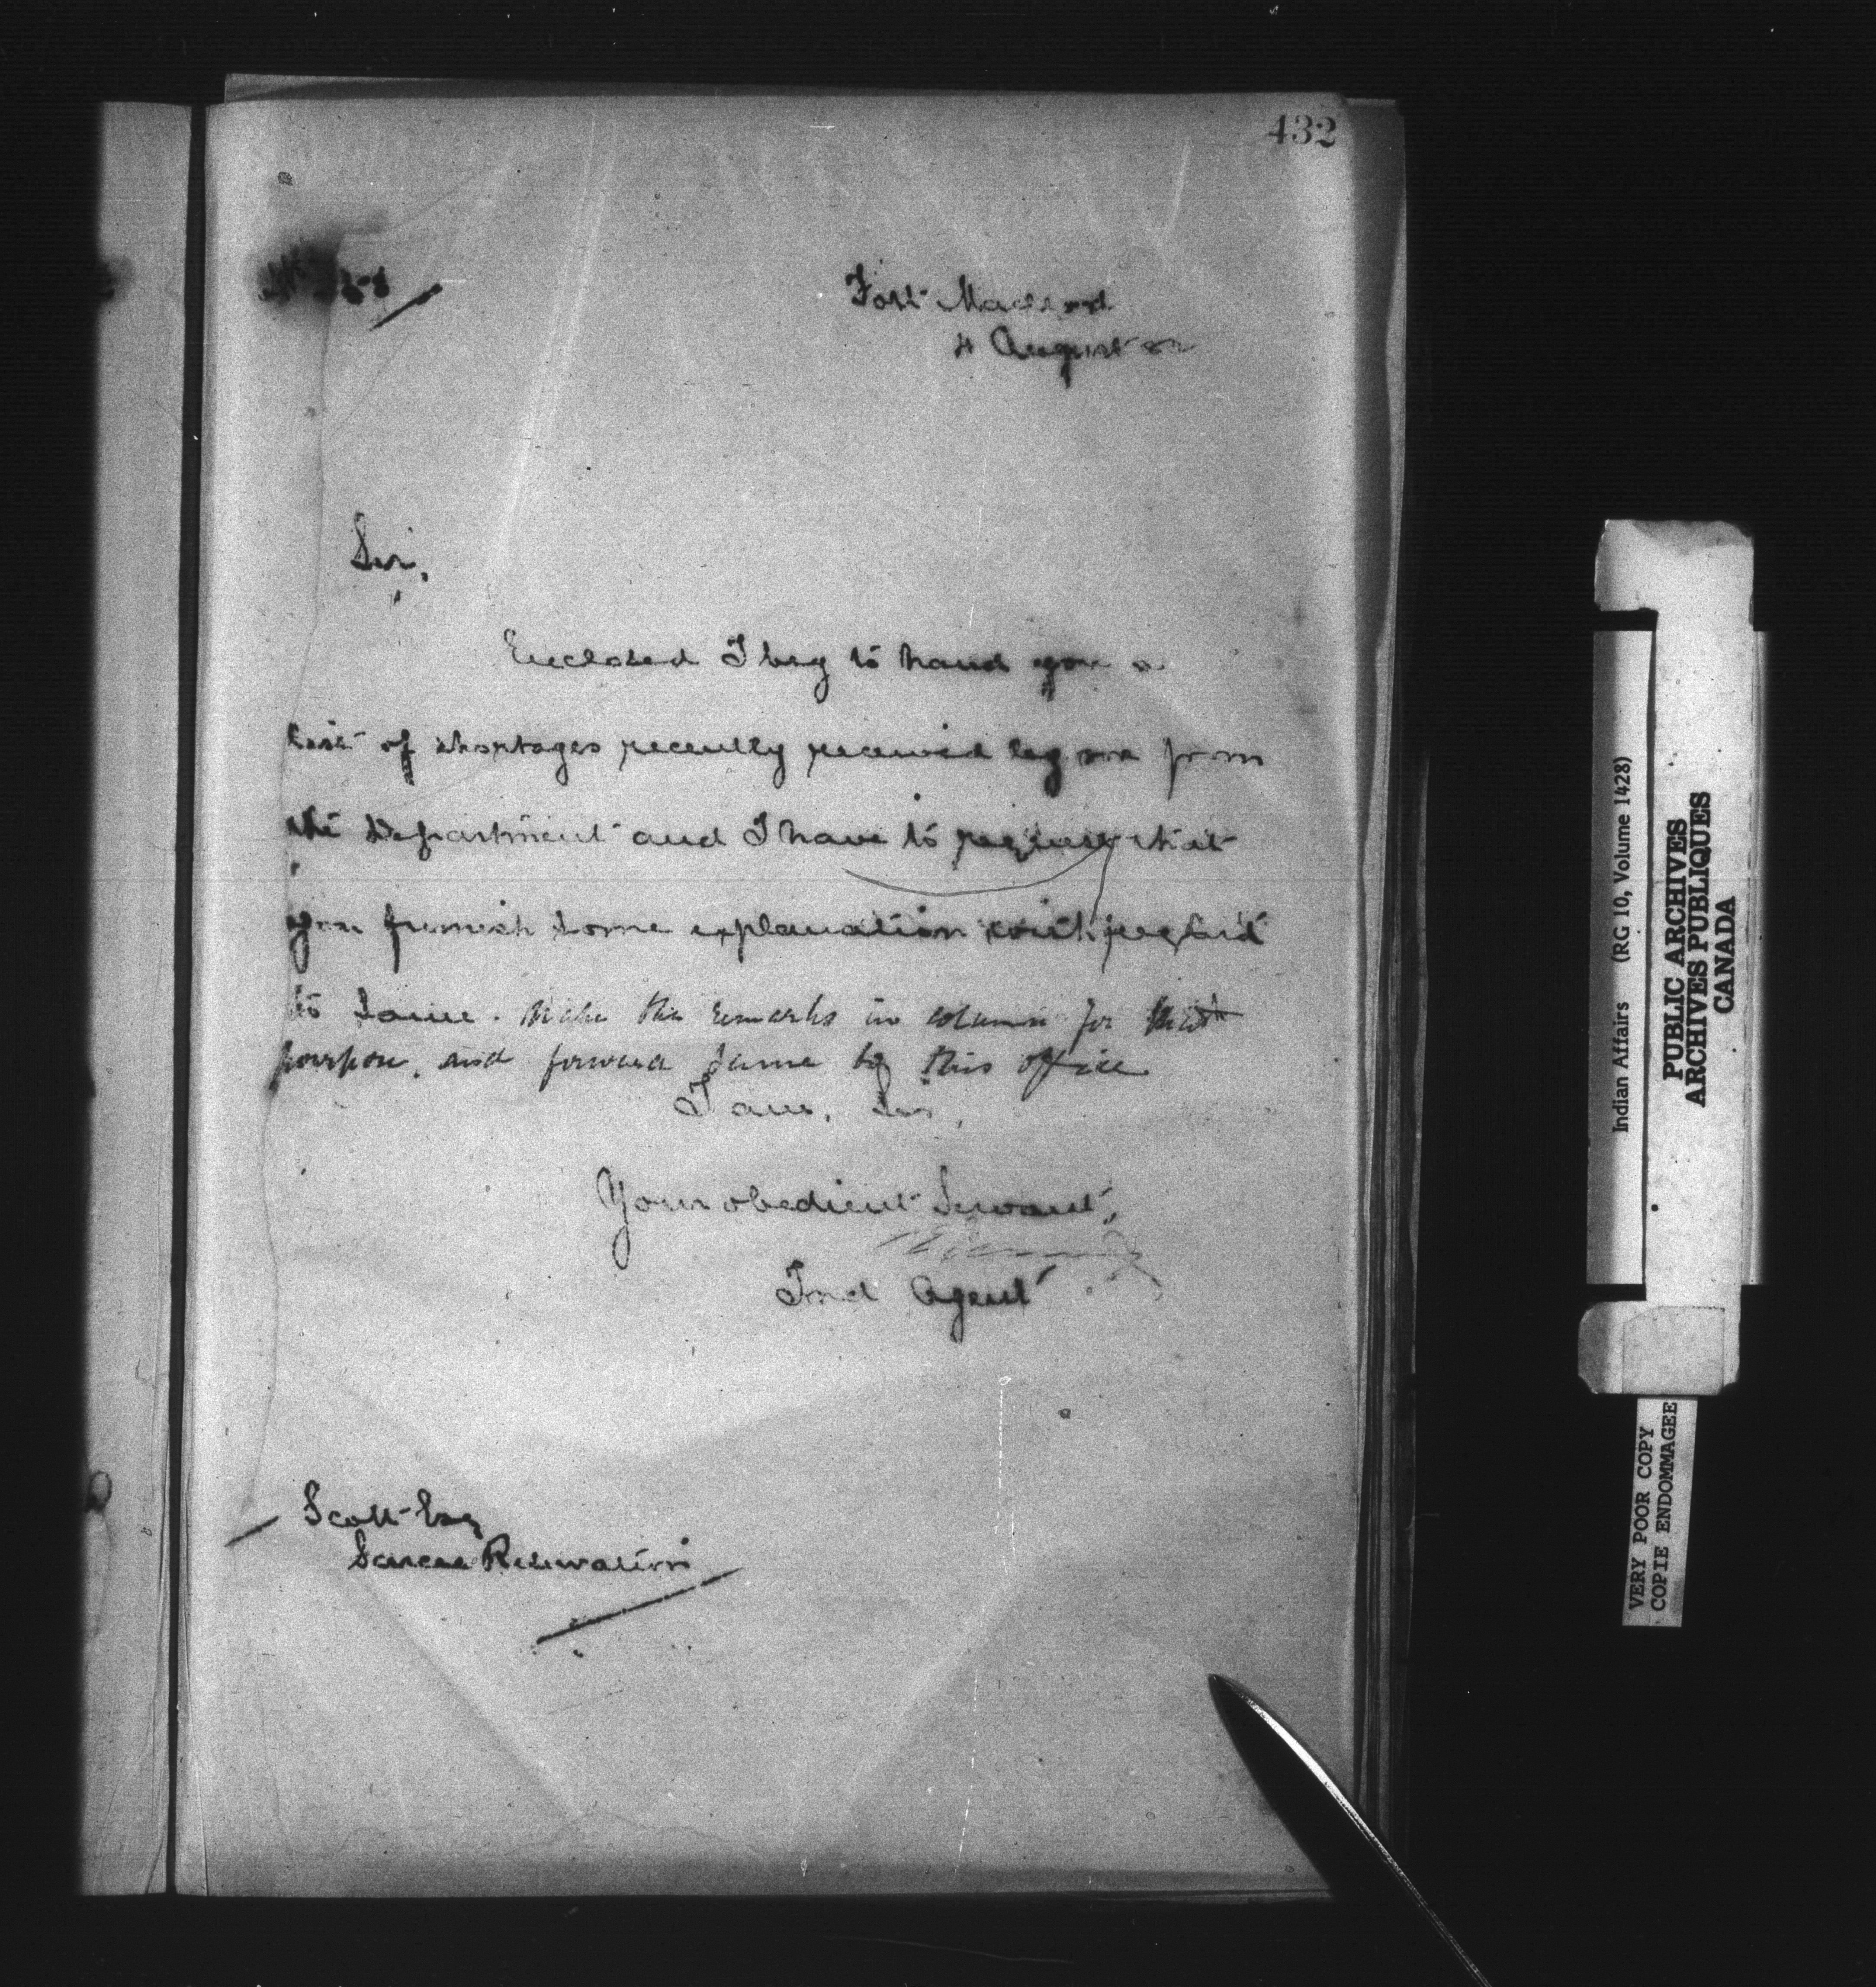 432
Fort Macleod
4 August 82
Sir,
Enclosed I beg to hand you a
list of shortages recently received by me from
the Department and I have to request that
you furnish some explanation with regard
to same. Make the remarks in column for that
purpose, and forward same to this office
I am, Sir,
Your obedient Servant,
Ind Agent
Scott Esq
Sarcee Reservation
Indian Affairs (RG 10, Volume 1428)
PUBLIC ARCHIVES
ARCHIVES PUBLIQUES
CANADA
VERY POOR COPY
COPIE ENDOMMAGEE